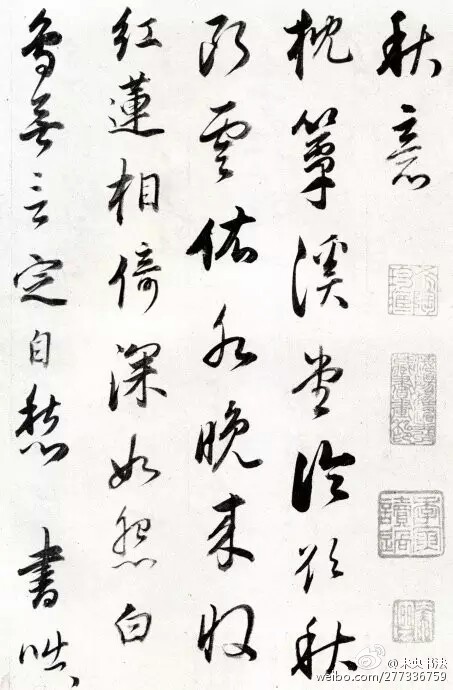 秋意
枕簟溪堂冷欲秋
断雲依水晚来收
紅蓮相倚深如怨白
鳥無言定自愁 書咄
@未央书法
weibo.com/277336759